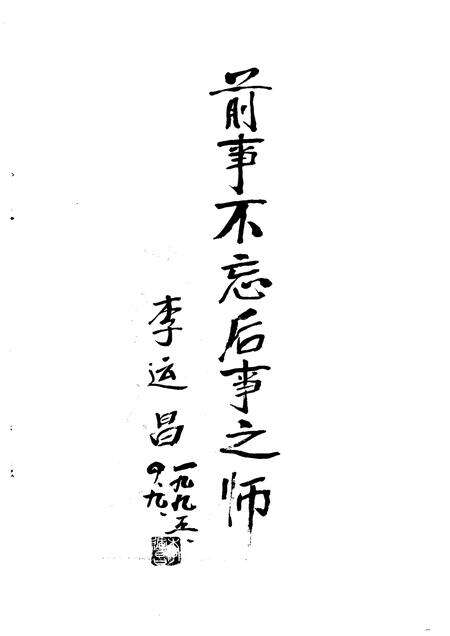 前事不忘后事之师
李运昌
一九九五、
四、九、